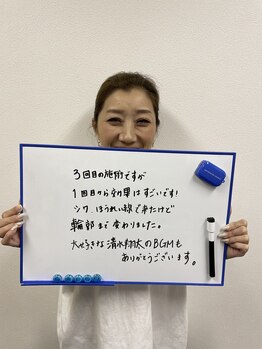 3回目の施術ですが
1回目から効果はすごいです!
シワ、ほうれい線で来たけど
輪郭まで変わりました。
大好きな清水翔太のBGMも
ありがとうございます。